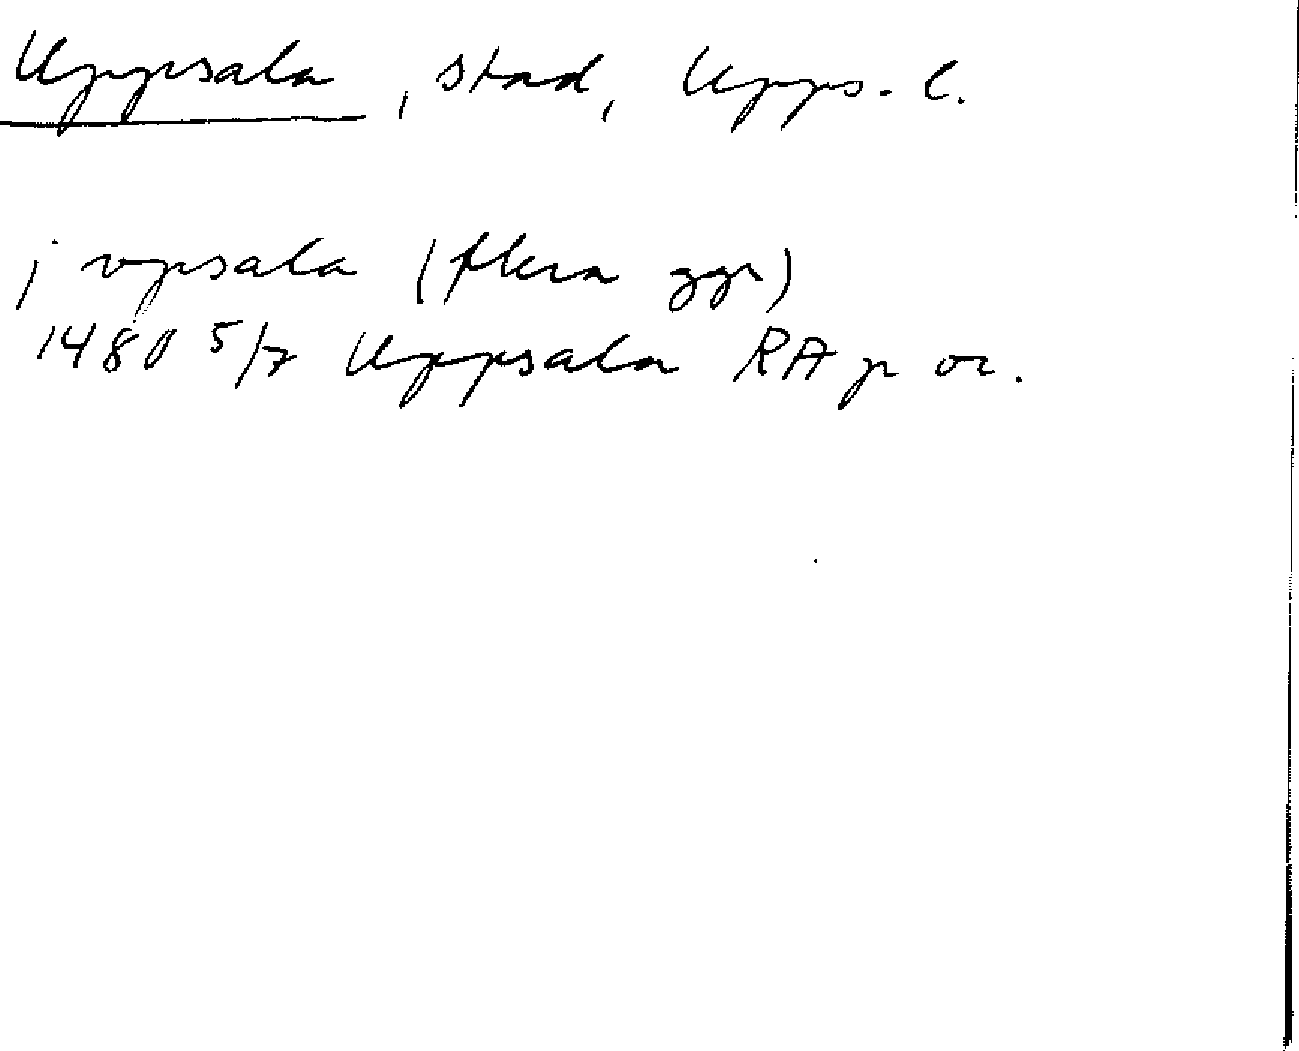 Uppsala, stad, Upps. l.
j vpsala (flera ggr)
1480 5/7 Uppsala RA p or.